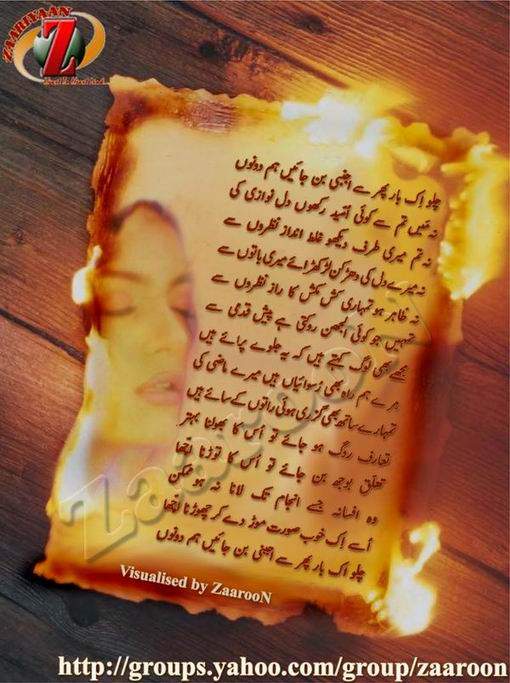 ZAARIYAAN
Z
چلو اِک بار پھر سے اجنبی بن جائیں ہم دونوں
نہ مَیں تم سے کوئی اُمّید رکھوں دل نوازی کی
نہ تم میری طرف دیکھو غلط انداز نظروں سے
نہ میرے دل کی دھڑکن لڑکھڑائے میری باتوں سے
نہ ظاہر ہو تمہاری کش مکش کا راز نظروں سے
تمہیں بھی کوئی اُلجھن روکتی ہے پیش قدمی سے
مجھے بھی لوگ کہتے ہیں کہ یہ جلوے پرائے ہیں
مرے ہم راہ بھی رُسوائیاں ہیں میرے ماضی کی
تمہارے ساتھ بھی گزری ہوئی راتوں کے سائے ہیں
تعارف روگ ہو جائے تو اُس کا بھولنا بہتر
تعلّق بوجھ بن جائے تو اُس کا توڑنا اچّھا
وہ افسانہ جسے انجام تک لانا نہ ہو ممکن
اُسے اِک خوب صورت موڑ دے کر چھوڑنا اچّھا
چلو اک بار پھر سے اجنبی بن جائیں ہم دونوں
ZaarooN
Visualised by ZaarooN
http://groups.yahoo.com/group/zaaroon